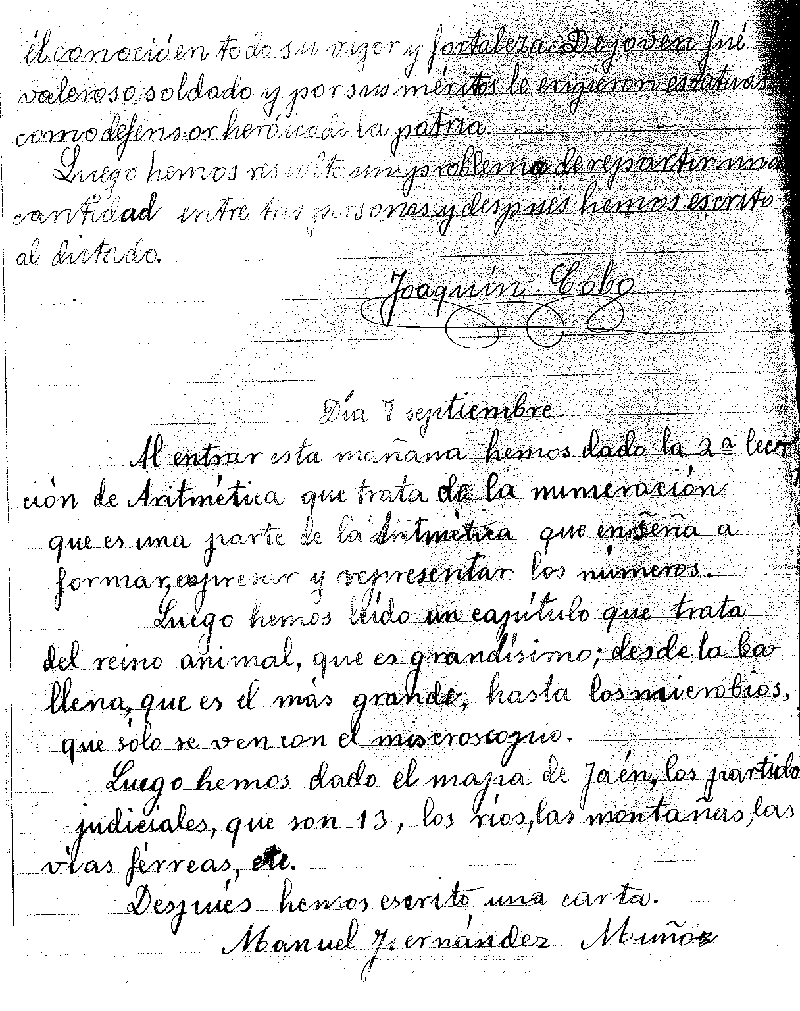 él conoció en todo su vigor y fortaleza. De joven fué
valeroso soldado y por sus méritos le erigieron estatuas
como defensor heróico de la patria.
Luego hemos resuelto un problema de repartir una
cantidad entre tres personas y después hemos escrito
al dictado.
Joaquín Cobo
Día 7 septiembre
Al entrar esta mañana hemos dado la 2ª lec-
ción de Aritmética que trata de la numeración
que es una parte de la Aritmética que enseña a
formar, expresar y representar los números.
Luego hemos leído un capítulo que trata
del reino animal, que es grandísimo; desde la ba-
llena, que es el más grande, hasta los microbios,
que sólo se ven con el
Luego hemos dado el mapa de Jaén, los partido
judiciales, que son 13, los ríos, las montañas, las
vías férreas, etc.
Después hemos escrito una carta.
Manuel Fernández Muñoz